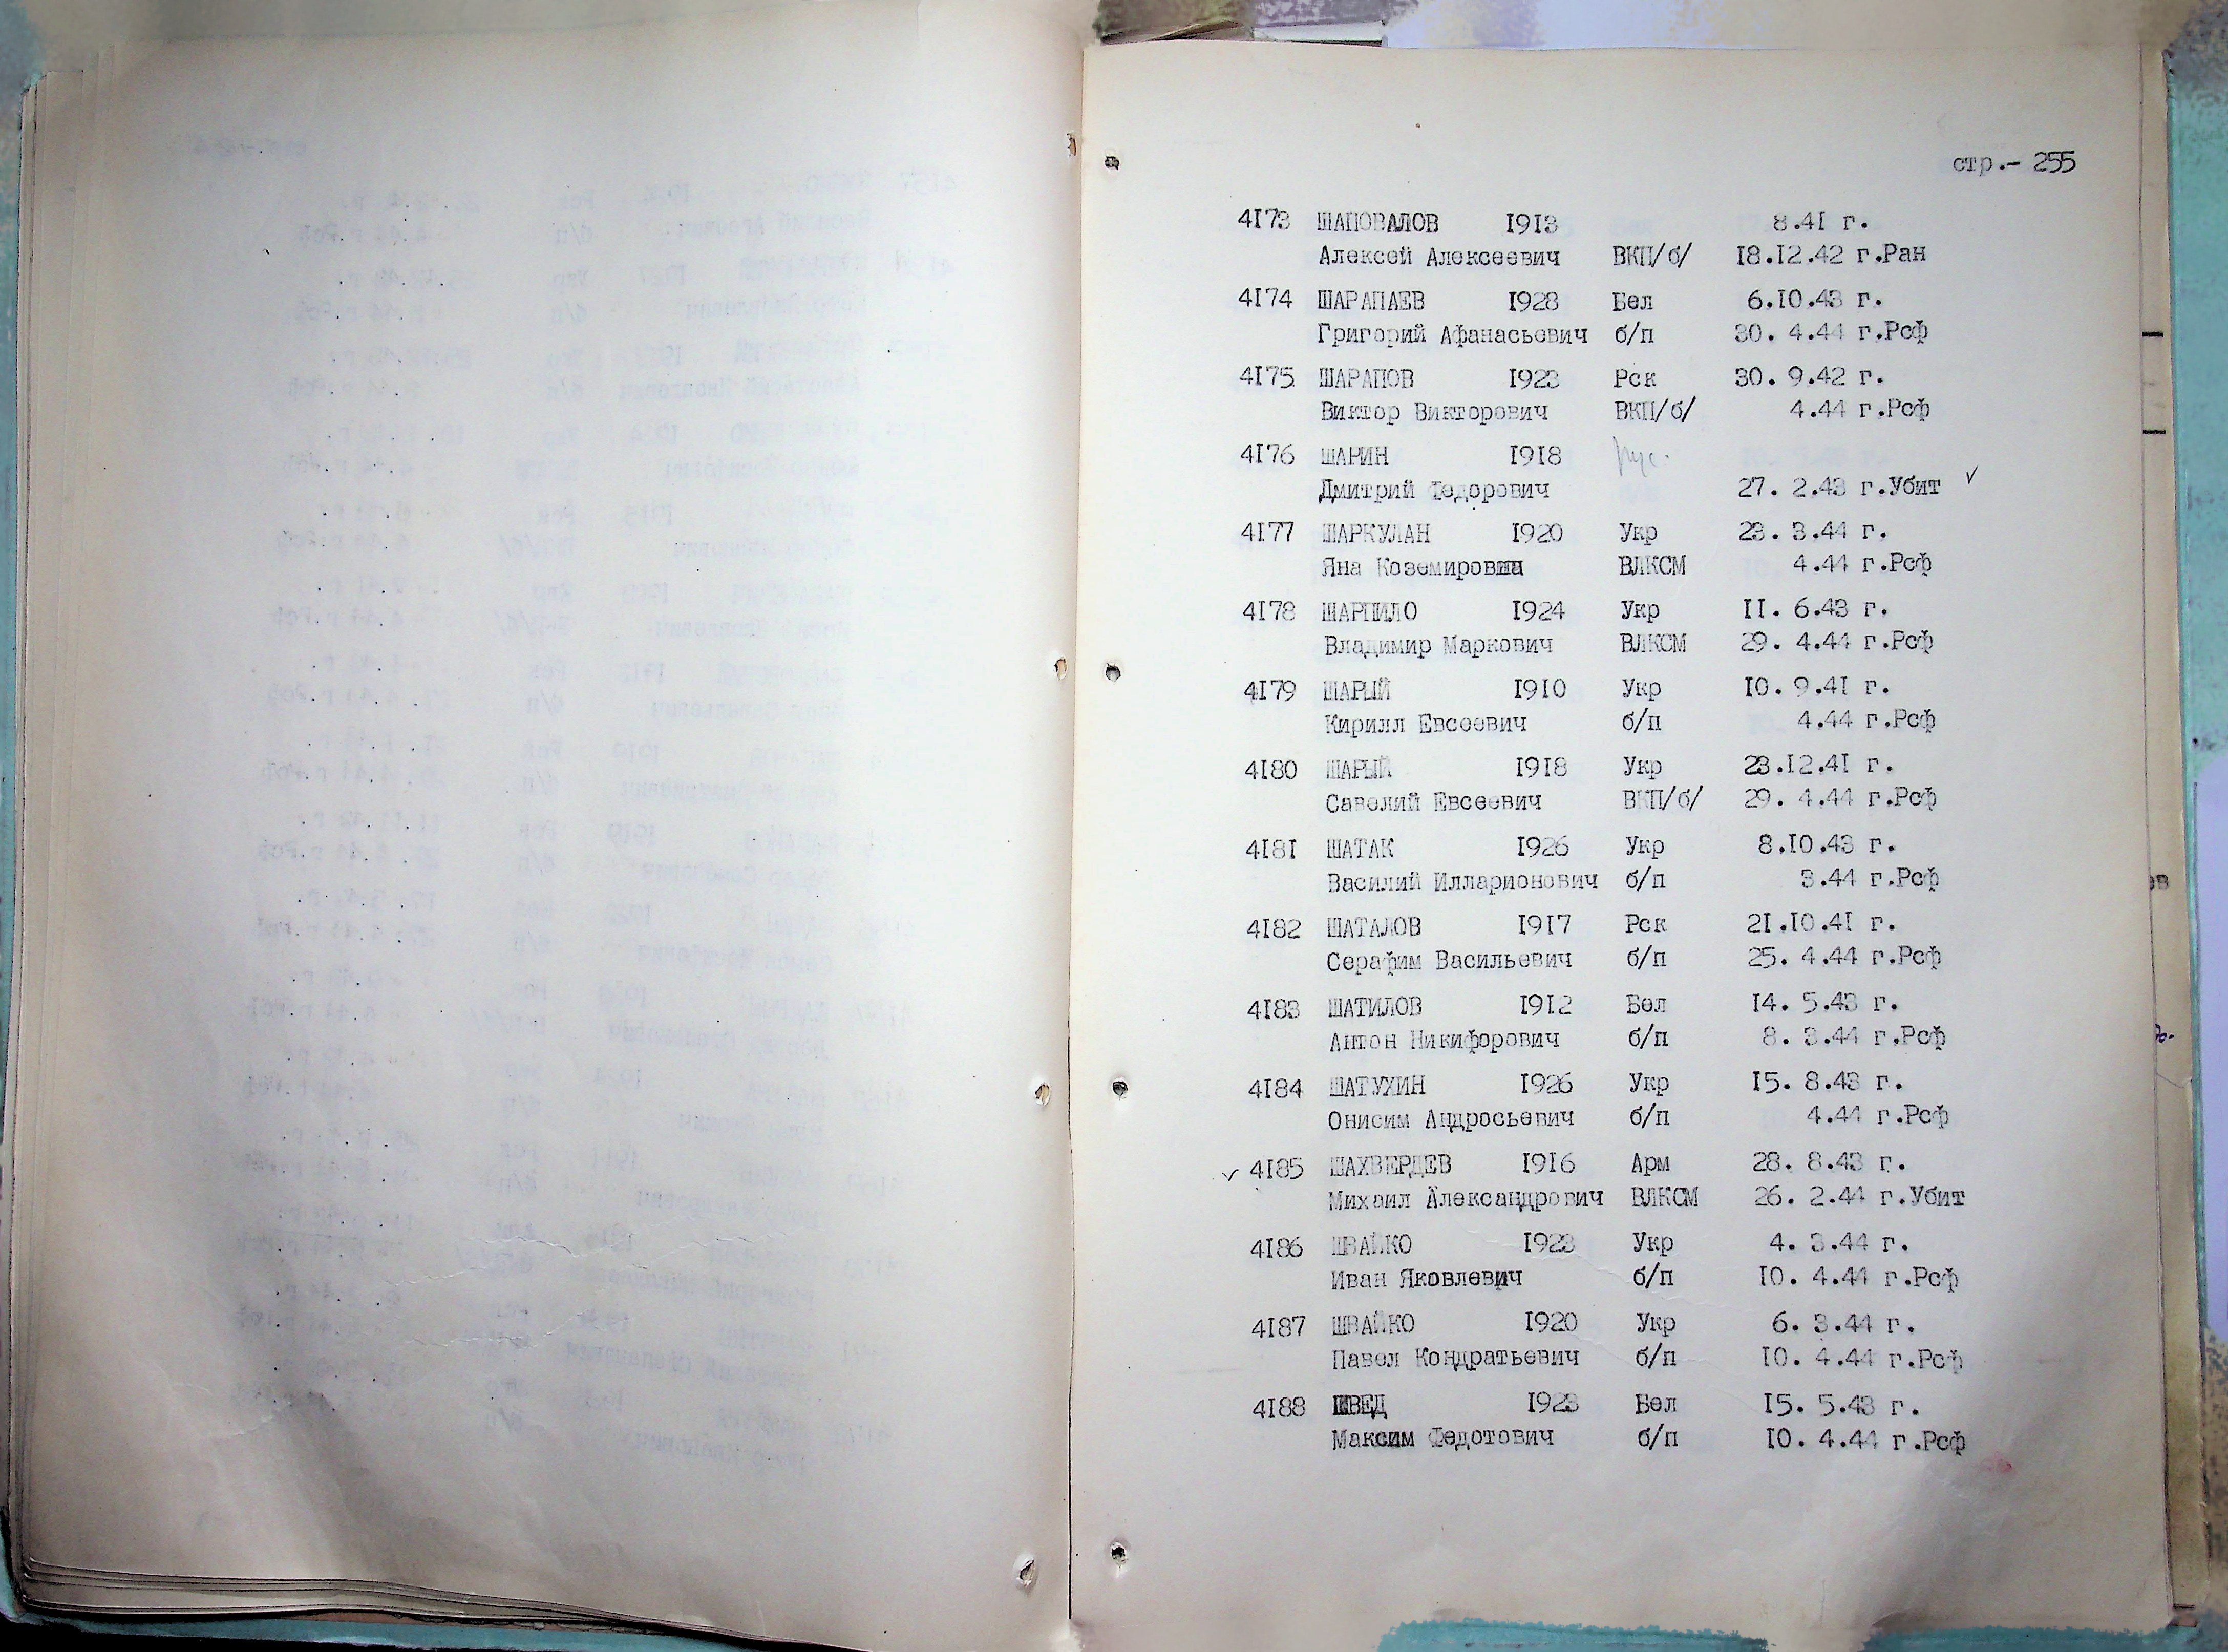 стр.- 255
4173 ШАПОВАЛОВ 1913 8.41 г.
Алексей Алексеевич ВКП/б/ 18.12.42 г.Ран
4174 ШАРАПАЕВ 1928 Бел 6.10.43 г.
Григорий Афанасьевич б/п 30. 4.44 г.Рсф
4175 ШАРАПОВ 1923 Рск 30. 9.42 г.
Виктор Викторович ВКП/б/ 4.44 г.Рсф
4176 ШАРИН 1918 рус.
Дмитрий Федорович 27. 2.43 г.Убит ✓
4177 ШАРКУЛАН 1920 Укр 23. 3.44 г.
Яна Коземировна ВЛКСМ 4.44 г.Рсф
4178 ШАРПИЛО 1924 Укр 11. 6.43 г.
Владимир Маркович ВЛКСМ 29. 4.44 г.Рсф
4179 ШАРЫЙ 1910 Укр 10. 9.41 г.
Кирилл Евсеевич б/п 4.44 г.Рсф
4180 ШАРЫЙ 1918 Укр 23.12.41 г.
Савелий Евсеевич ВКП/б/ 29. 4.44 г.Рсф
4181 ШАТАК 1926 Укр 8.10.43 г.
Василий Илларионович б/п 3.44 г.Рсф
4182 ШАТАЛОВ 1917 Рск 21.10.41 г.
Серафим Васильевич б/п 25. 4.44 г.Рсф
4183 ШАТИЛОВ 1912 Бел 14. 5.43 г.
Антон Никифорович б/п 8. 3.44 г.Рсф
4184 ШАТУХИН 1926 Укр 15. 8.43 г.
Онисим Андросьевич б/п 4.44 г.Рсф
✓ 4185 ШАХВЕРДЕВ 1916 Арм 28. 8.43 г.
Михаил Александрович ВЛКСМ 26. 2.44 г.Убит
4186 ШВАЙКО 1923 Укр 4. 3.44 г.
Иван Яковлевич б/п 10. 4.44 г.Рсф
4187 ШВАЙКО 1920 Укр 6. 3.44 г.
Павел Кондратьевич б/п 10. 4.44 г.Рсф
4188 ШВЕД 1923 Бел 15. 5.43 г.
Максим Федотович б/п 10. 4.44 г.Рсф